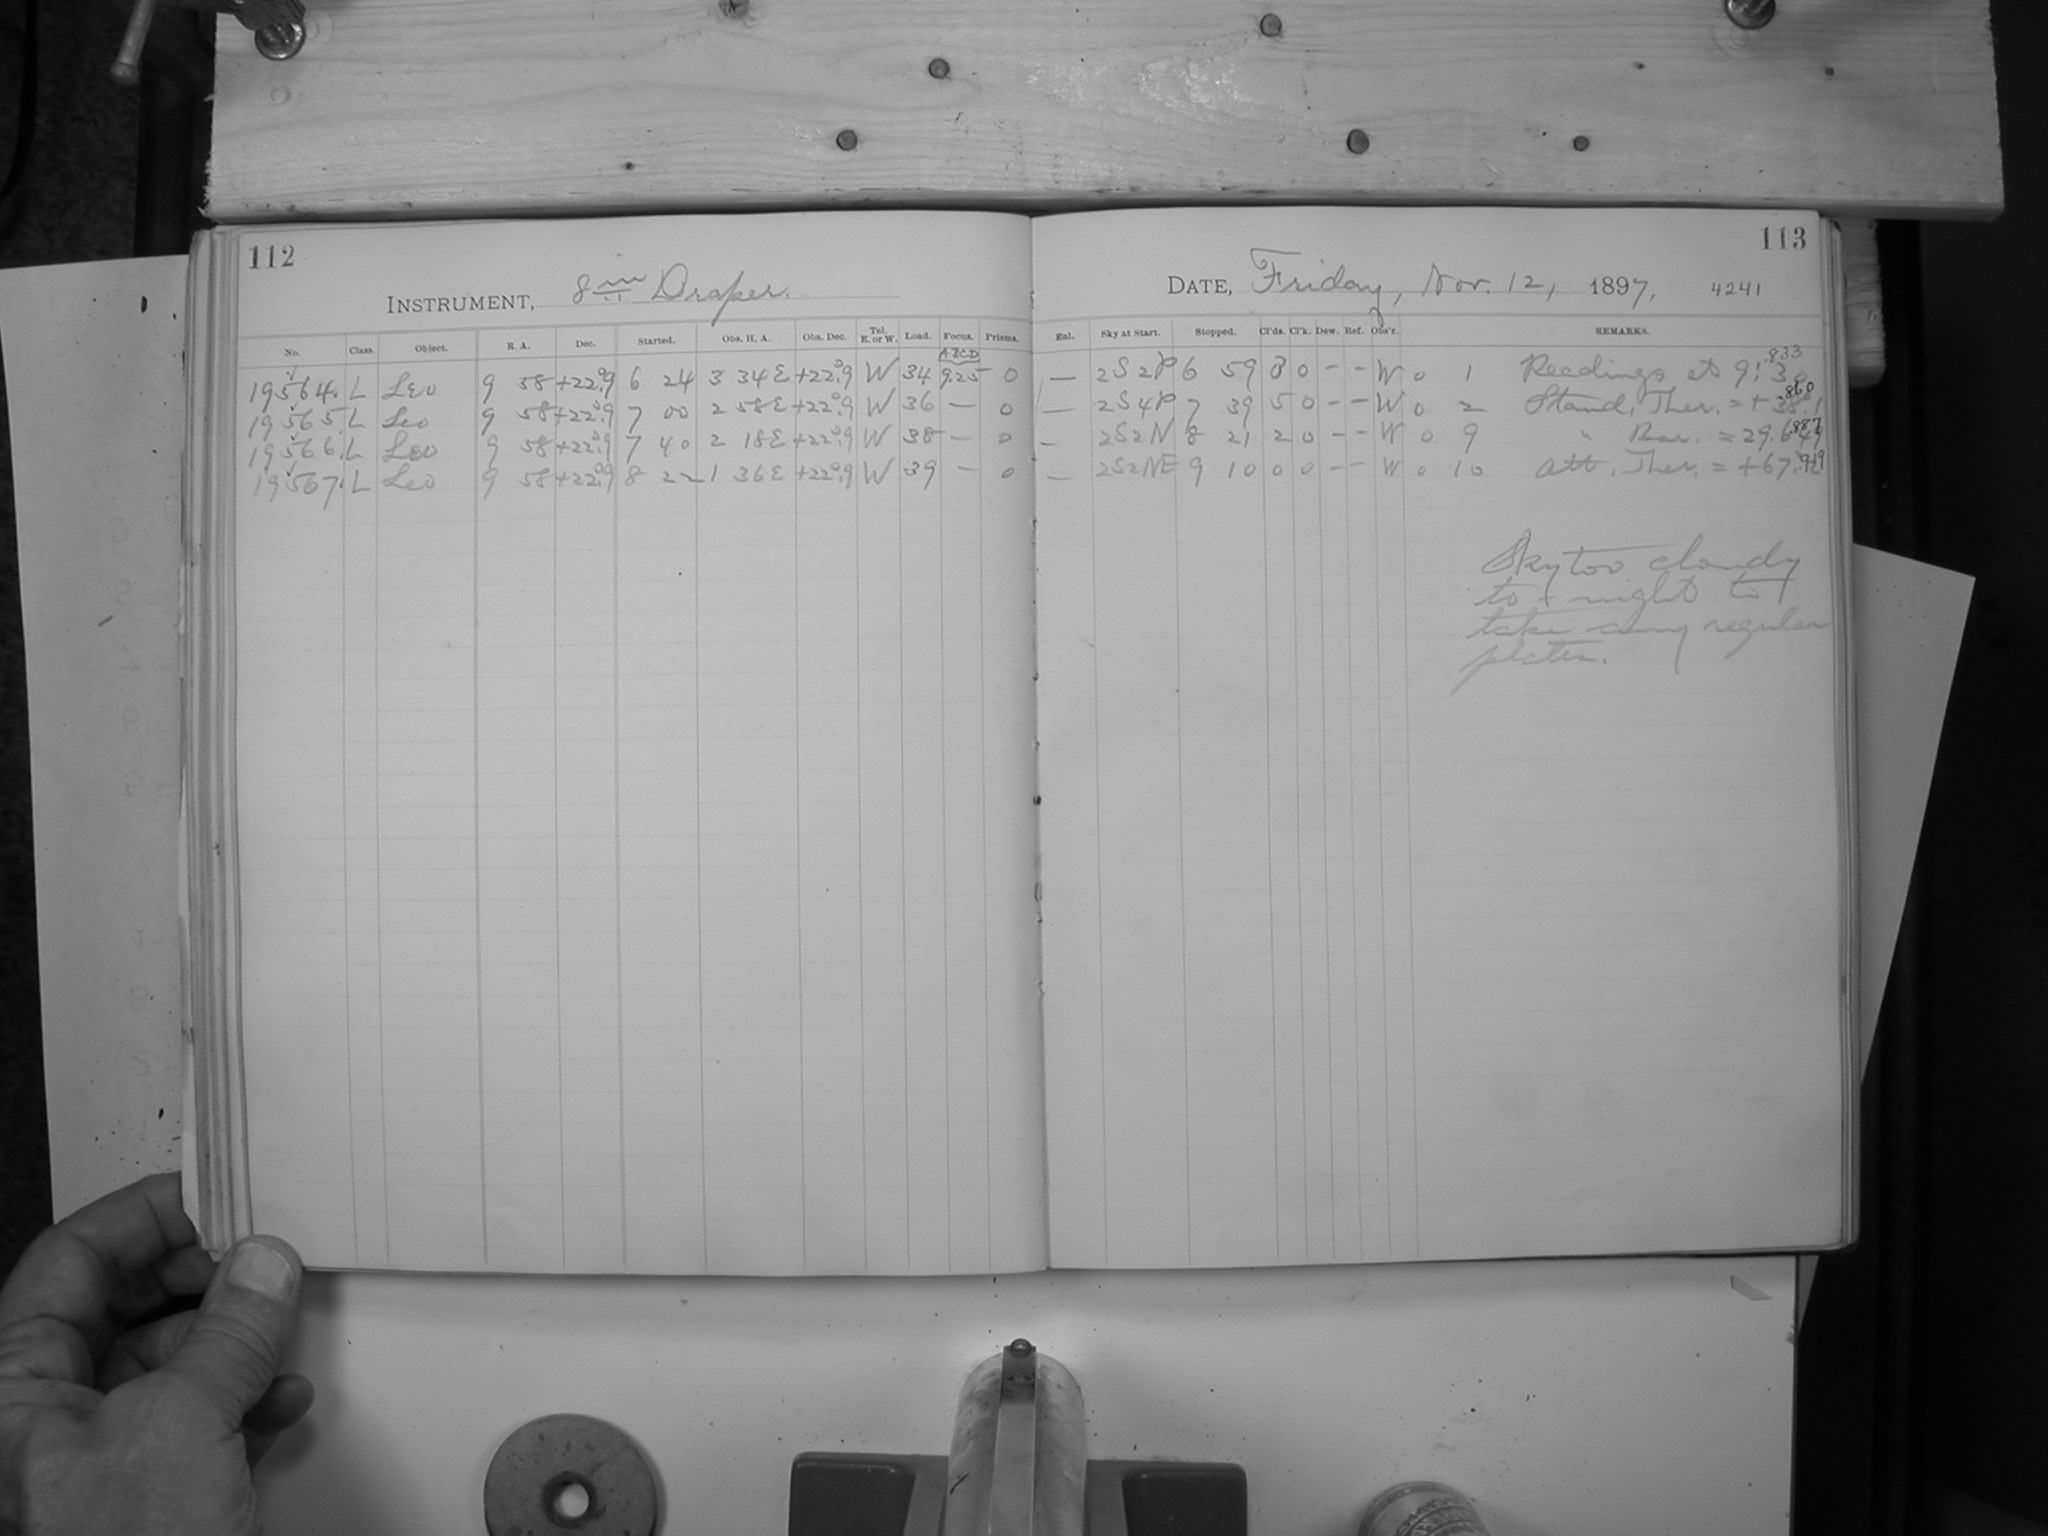 112
INSTRUMENT, 8 in Draper.
No. Class. Object. R. A. Dec. Started. Obs. H. A. Obs. Dec. Tel. E. or W. Load. Focus. Prisms.
ABCD
19564. L Leo 9 58 +22°.9 6 24 3 34E +22°.9 W 34 9.25 0
19565. L Leo 9 58 +22°.9 7 00 2 58E +22°.9 W 36 — 0
19566. L Leo 9 58 +22°.9 7 40 2 18E +22°.9 W 38 — 0
19567. L Leo 9 58 +22°.9 8 22 1 36E +22°.9 W 39 — 0
113
DATE, Friday, Nov. 12, 1897, 4241
Enl. Sky at Start. Stopped. Cl'ds. Cl'k. Dew. Ref. Obs'r. REMARKS.
— 2S2P 6 59 8 0 - - W 0 1 Readings at 9:30 .833
— 2S4P 7 39 5 0 - - W 0 2 Stand. Ther. = + 38.1 .860
— 2S2N 8 21 2 0 - - W 0 9 " Bar. = 29.649 .887
— 2S2NE 9 10 0 0 - - W 0 10 Att. Ther. = +67. .919
Sky too cloudy
to-night to
take any regular
plates.